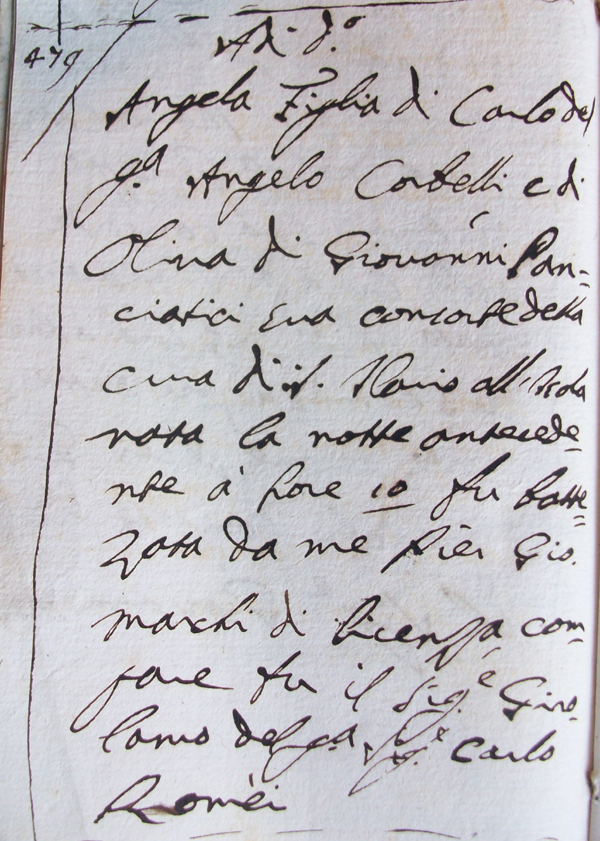 479
Adi d.º
Angela Figlia di Carlo del
q.m Angelo Corbelli e di
Oliva di Giovanni Pan=
ciatici sua consorte della
cura di S. Ilario all'Isola
nata la notte antecede=
nte à hore 10 fu batte=
zata da me Pier Gio.
marchi di licenza com=
pare fu il Sig.e Giro=
lamo del q.m Sig.e Carlo
Romei